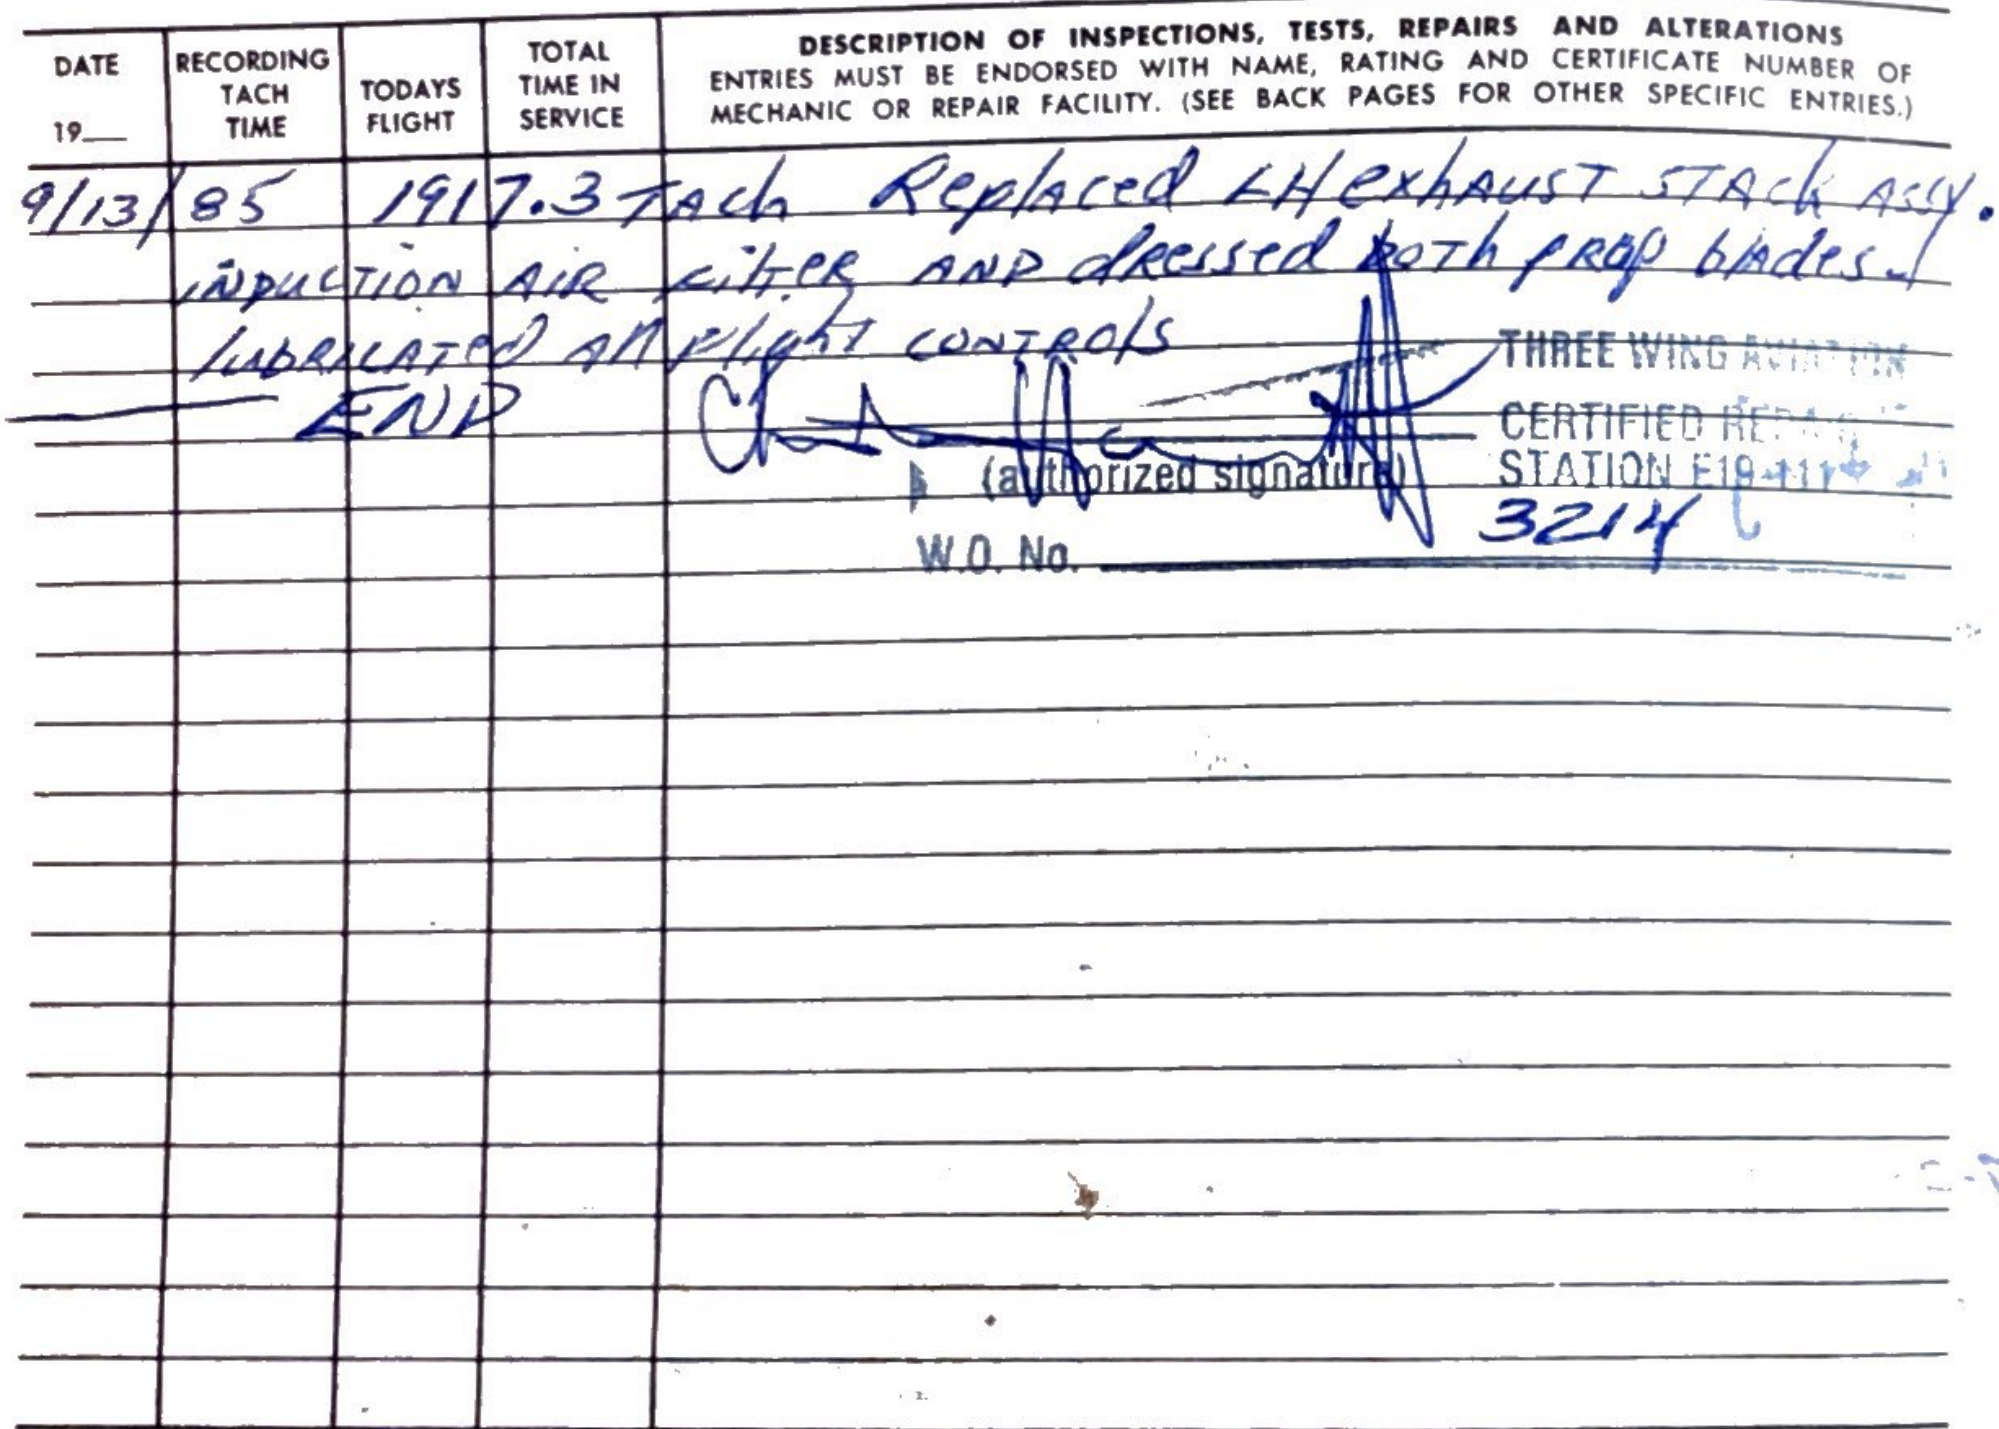 DATE
19__
RECORDING
TACH
TIME
TODAYS
FLIGHT
TOTAL
TIME IN
SERVICE
DESCRIPTION OF INSPECTIONS, TESTS, REPAIRS AND ALTERATIONS
ENTRIES MUST BE ENDORSED WITH NAME, RATING AND CERTIFICATE NUMBER OF
MECHANIC OR REPAIR FACILITY. (SEE BACK PAGES FOR OTHER SPECIFIC ENTRIES.)
9/13/85 1917.3 Tach Replaced LH exhAUST STAck ASSY.
iNDUCTION AIR FilteR AND dRessed both pROp blAdes.
lubRICATed All Flight CONTROls
END
THREE WING AVIATION
CERTIFIED REPAIR
STATION E19-111
(authorized signature)
3214
W.O. No.